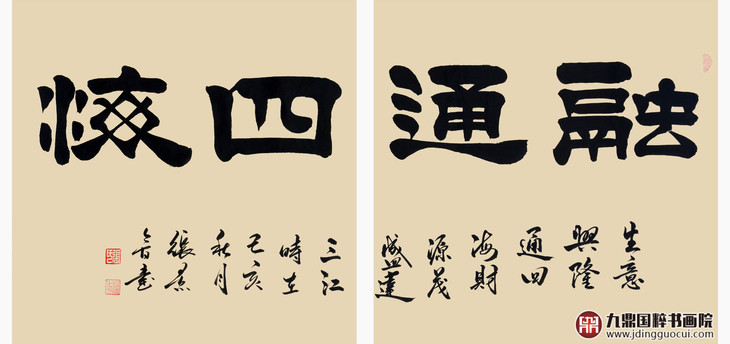 融通四海
生意
興隆
通四
海財
源茂
盛達
三江
時在
己亥
秋月
張君
九鼎国粹书画院
www.jdingguocui.com